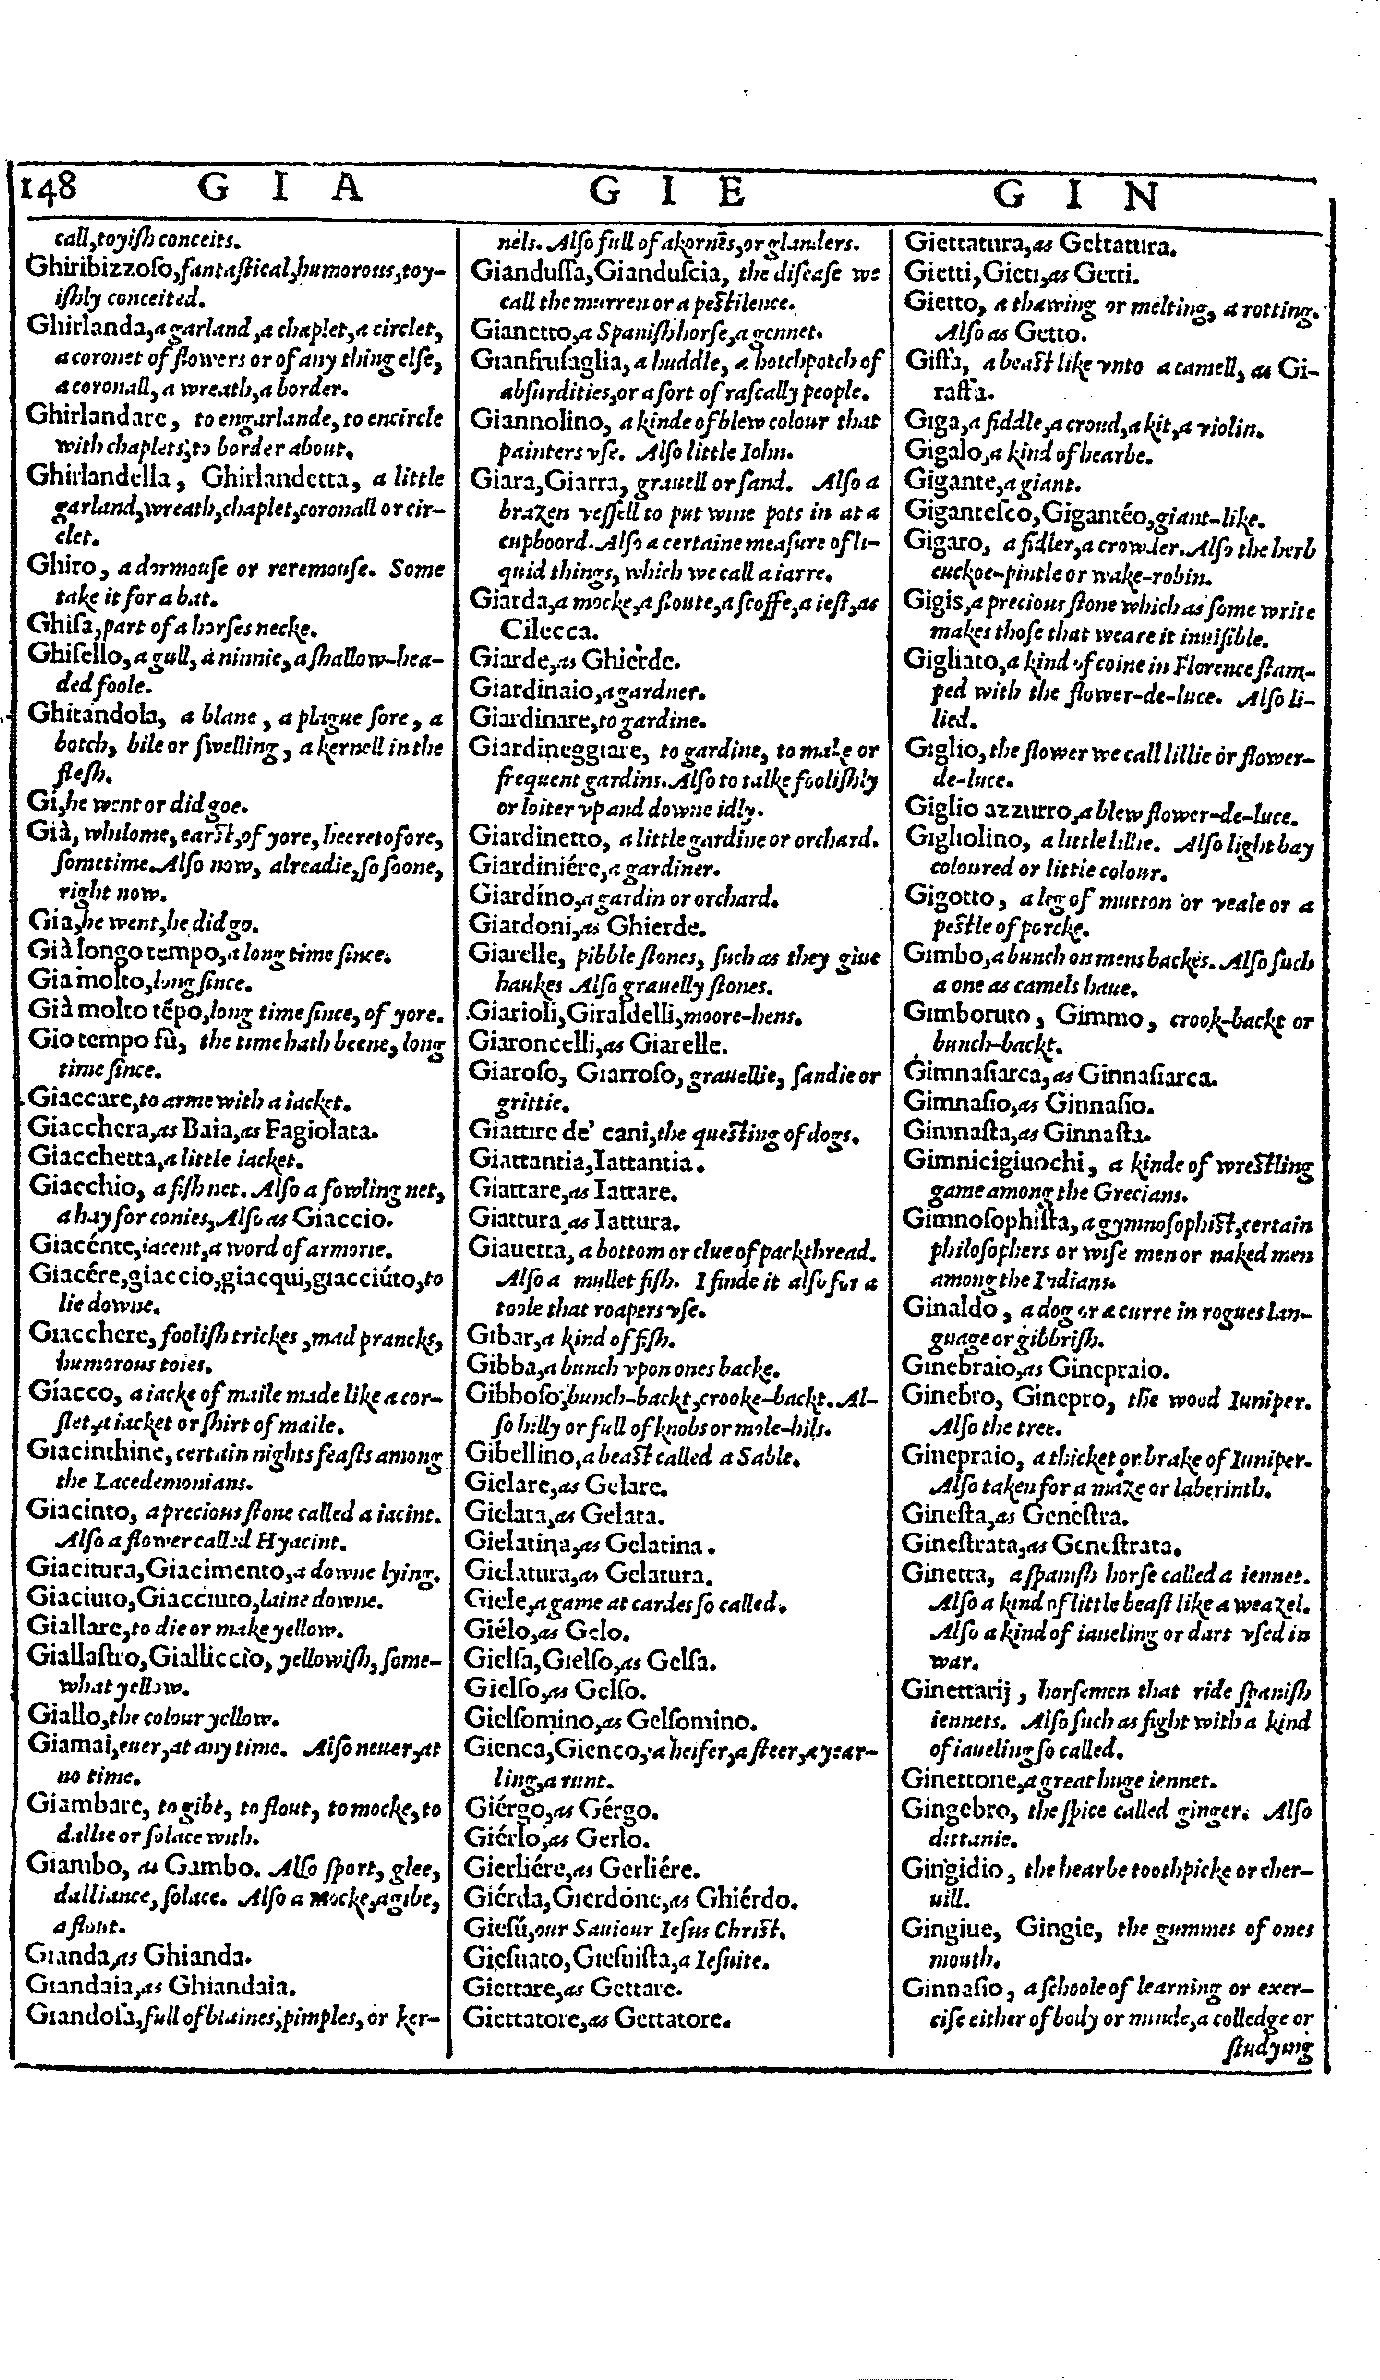 148 GIA GIE GIN
call, toyiſh conceits.
Ghiribizzoſo, fantaſtical, humorous, toy-
iſhly conceited.
Ghirlanda, a garland, a chaplet, a circlet,
a coronet of flowers or of any thing elſe,
a coronall, a wreath, a border.
Ghirlandare, to engarlande, to encircle
with chaplets, to border about.
Ghirlandella, Ghirlandetta, a little
garland, wreath, chaplet, coronall or cir-
clet.
Ghiro, a dormouſe or reremouſe. Some
take it for a bat.
Ghiſa, part of a horſes necke.
Ghiſello, a gull, a ninnie, a ſhallow-hea-
ded foole.
Ghitándola, a blane, a plague ſore, a
botch, bile or ſwelling, a kernell in the
fleſh.
Gi, he went or did goe.
Già, whilome, earſt, of yore, heeretofore,
ſometime. Alſo now, alreadie, ſo ſoone,
right now.
Gia, he went, he did go.
Già longo tempo, a long time ſince.
Gia molto, long ſince.
Già molto tẽpo, long time ſince, of yore.
Gio tempo fù, the time hath beene, long
time ſince.
Giaccare, to arme with a iacket.
Giacchera, as Baia, as Fagiolata.
Giacchetta, a little iacket.
Giacchio, a fiſh net. Alſo a fowling net,
a hay for conies, Alſo as Giaccio.
Giacénte, iacent, a word of armorie.
Giacére, giaccio, giacqui, giacciúto, to
lie downe.
Giacchere, fooliſh trickes, mad pranckes,
humorous toies.
Giacco, a iacke of maile made like a cor-
ſlet, a iacket or ſhirt of maile.
Giacinthine, certain nights feaſts among
the Lacedemonians.
Giacinto, a precious ſtone called a iacint.
Alſo a flower called Hyacint.
Giacitura, Giacimento, a downe lying.
Giaciuto, Giacciuto, laine downe.
Giallare, to die or make yellow.
Giallaſtro, Gialliccio, yellowiſh, ſome-
what yellow.
Giallo, the colour yellow.
Giamai, euer, at any time. Alſo neuer, at
no time.
Giambare, to gibe, to flout, to mocke, to
dallie or ſolace with.
Giambo, as Gambo. Alſo ſport, glee,
dalliance, ſolace. Alſo a mocke, a gibe,
a flout.
Gianda, as Ghianda.
Giandaia, as Ghiandaia.
Giandoſa, full of blaines, pimples, or ker-
nels. Alſo full of akornes, or glanders.
Gianduſſa, Gianduſcia, the diſeaſe we
call the murren or a peſtilence.
Gianetto, a Spaniſh horſe, a gennet.
Gianfruſaglia, a huddle, a hotchpotch of
abſurdities, or a ſort of raſcally people.
Giannolino, a kinde of blew colour that
painters vſe. Alſo little Iohn.
Giara, Giarra, grauell or ſand. Alſo a
brazen veſſell to put wine pots in at a
cupboord. Alſo a certaine meaſure of li-
quid things, which we call a iarre.
Giarda, a mocke, a floute, a ſcoffe, a ieſt, as
Cilecca.
Giarde, as Ghierde.
Giardinaio, a gardner.
Giardinare, to gardine.
Giardineggiare, to gardine, to make or
frequent gardins. Alſo to talke fooliſhly
or loiter vp and downe idly.
Giardinetto, a little gardine or orchard.
Giardiniére, a gardiner.
Giardíno, a gardin or orchard.
Giardoni, as Ghierde.
Giarelle, pibble ſtones, ſuch as they giue
haukes Alſo grauelly ſtones.
Giarioli, Giraldelli, moore-hens.
Giaroncelli, as Giarelle.
Giaroſo, Giarroſo, grauellie, ſandie or
grittie.
Giattire de' cani, the queſting of dogs.
Giattantia, Iattantia.
Giattare, as Iattare.
Giattura as Iattura.
Giauetta, a bottom or clue of packthread.
Alſo a mullet fiſh. I finde it alſo for a
toole that roapers vſe.
Gibar, a kind of fiſh.
Gibba, a bunch vpon ones backe.
Gibboſo, bunch-backt, crooke-backt. Al-
ſo hilly or full of knobs or mole-hils.
Gibellino, a beaſt called a Sable.
Gielare, as Gelare.
Gielata, as Gelata.
Gielatina, as Gelatina.
Gielatura, as Gelatura.
Giele, a game at cardes ſo called.
Giélo, as Gelo.
Gielſa, Gielſo, as Gelſa.
Gielſo, as Gelſo.
Gielſomino, as Gelſomino.
Gienca, Gienco, a heifer, a ſteer, a year-
ling, a runt.
Giérgo, as Gérgo.
Giérlo, as Gerlo.
Gierliére, as Gerliére.
Giérda, Gierdóne, as Ghiérdo.
Gieſú, our Sauiour Ieſus Chriſt.
Gieſuato, Gieſuiſta, a Ieſuite.
Giettare, as Gettare.
Giettatore, as Gettatore.
Giettatura, as Gettatura.
Gietti, Gieti, as Getti.
Gietto, a thawing or melting, a rotting.
Alſo as Getto.
Giffa, a beaſt like vnto a camell, as Gi-
raffa.
Giga, a fiddle, a croud, a kit, a violin.
Gigalo, a kind of hearbe.
Gigante, a giant.
Giganteſco, Gigantéo, giant-like.
Gigaro, a fidler, a crowder. Alſo the herb
cuckoe-pintle or wake-robin.
Gigis, a precious ſtone which as ſome write
makes thoſe that weare it inuiſible.
Gigliato, a kind of coine in Florence ſtam-
ped with the flower-de-luce. Alſo li-
lied.
Giglio, the flower we call lillie or flower-
de-luce.
Giglio azzurro, a blew flower-de-luce.
Gigliolino, a little lillie. Alſo light bay
coloured or little colour.
Gigotto, a leg of mutton or veale or a
peſtle of porcke.
Gimbo, a bunch on mens backes. Alſo ſuch
a one as camels haue.
Gimboruto, Gimmo, crook-backt or
bunch-backt.
Gimnaſiarca, as Ginnaſiarca.
Gimnaſio, as Ginnaſio.
Gimnaſta, as Ginnaſta.
Gimnicigiuochi, a kinde of wreſtling
game among the Grecians.
Gimnoſophiſta, a gymnoſophiſt, certain
philoſophers or wiſe men or naked men
among the Indians.
Ginaldo, a dog or a curre in rogues lan-
guage or gibbriſh.
Ginebraio, as Ginepraio.
Ginebro, Ginepro, the woud Iuniper.
Alſo the tree.
Ginepraio, a thicket or brake of Iuniper.
Alſo taken for a maze or laberinth.
Gineſta, as Geneſtra.
Gineſtrata, as Geneſtrata.
Ginetta, a ſpaniſh horſe called a iennet.
Alſo a kind of little beaſt like a weazel.
Alſo a kind of iaueling or dart vſed in
war.
Ginettarij, horſemen that ride ſpaniſh
iennets. Alſo ſuch as fight with a kind
of iaueling ſo called.
Ginettone, a great huge iennet.
Gingebro, the ſpice called ginger. Alſo
dittanie.
Gingidio, the hearbe toothpicke or cher-
uill.
Gingiue, Gingie, the gummes of ones
mouth.
Ginnaſio, a ſchoole of learning or exer-
ciſe either of body or minde, a colledge or
ſtudying